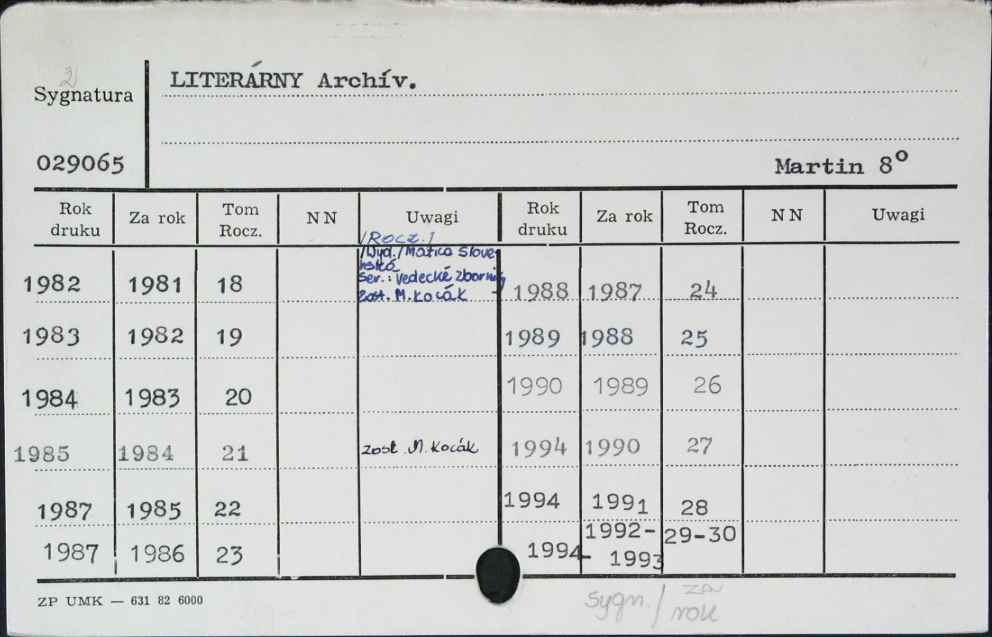 2
Sygnatura
LITERÁRNY Archív.
029065
Martin 8°
Rok druku Za rok Tom Rocz. NN Uwagi Rok druku Za rok Tom Rocz. NN Uwagi
/Rocz./
/Wyd./Matica Slove-
nská
Ser.: Vedecké zborníky
zost. M. Kocák
1982 1981 18 1988 1987 24
1983 1982 19 1989 1988 25
1984 1983 20 1990 1989 26
1985 1984 21 zost. M. Kocák 1994 1990 27
1987 1985 22 1994 1991 28
1987 1986 23 1994 1992-1993 29-30
ZP UMK — 631 82 6000
sygn./ za rok